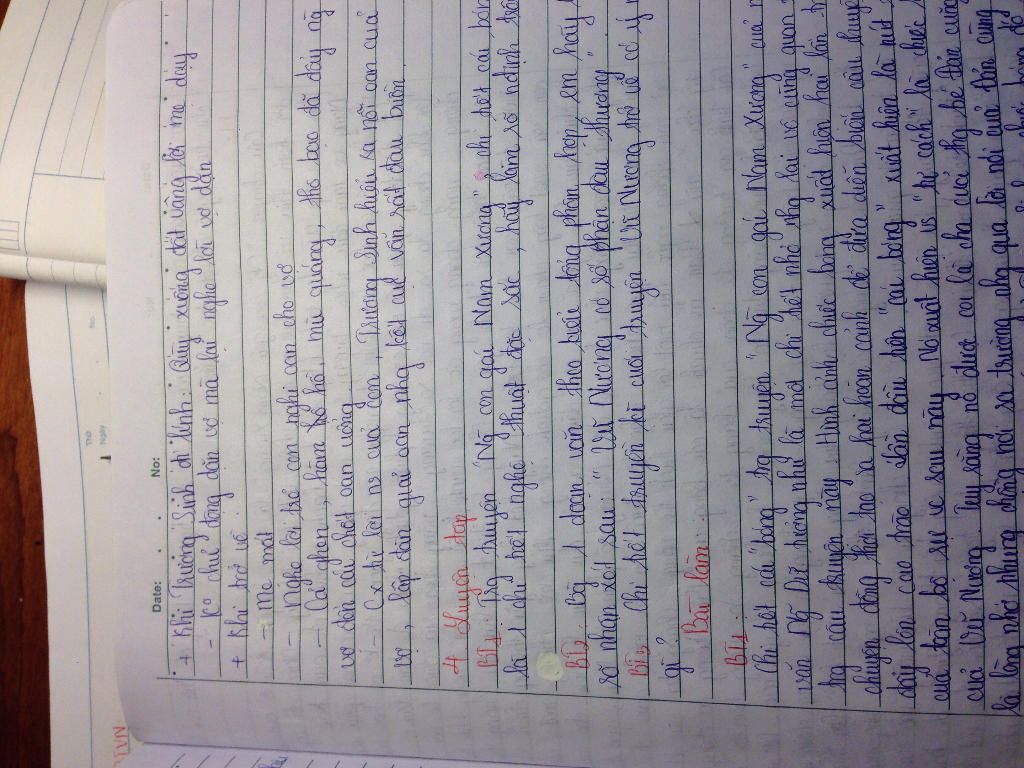 Date: No:
+ Khi Trương Sinh đi lính: Quỳ xuống đất vâng lời mẹ dạy
- Ko chỉ tông dặn vợ mà lại nghe lời vợ dặn
+ Khi trở về
- Mẹ mất
- Nghe lời trẻ con nghi oan cho vợ
- Cả ghen, hàm hồ, mù quáng, thô bạo đã đẩy
vợ đến cái chết oan uổng
- Cx từ lời ns của con, Trương Sinh hiểu ra nỗi oan của
vợ, lập đàn giải oan nhg kết cục vẫn rất đau buồn
4 Luyện tập
BT1: Trg truyện "Ng con gái Nam Xương" chi tiết cái bóng
là 1 chi tiết nghệ thuật đặc sắc, hãy làm rõ nhận định trên
BT2: Bằng 1 đoạn văn theo tổng phân hợp, em hãy
rõ nhận xét sau: "Vũ Nương có số phận đau thương"
BT3: Chi tiết truyện kì cuối truyện Vũ Nương trở về có ý
gì?
Bài làm:
BT1:
Chi tiết "cái bóng" trg truyện "Ng con gái Nam Xương" của
văn Ng Dữ tưởng như là một chi tiết nhỏ nhg lại vô cùng quan
trg câu truyện này. Hình ảnh chiếc bóng xuất hiện hai lần
chuyện đồng thời tạo ra hai hoàn cảnh để đưa diễn biến câu
đẩy lên cao trào. Lần đầu tiên "cái bóng" xuất hiện là nút
của tấm bi sự về sau này. Nó xuất hiện vs "tư cách" là chiếc
của Vũ Nương. Tuy rằng nó dưới cái là cha của thg bé Đản cũng
là lòng nhớ nhung chồng nơi sa trường nhg qua lời nói của Đản cũng
Thứ
Ngày
No.
TVN